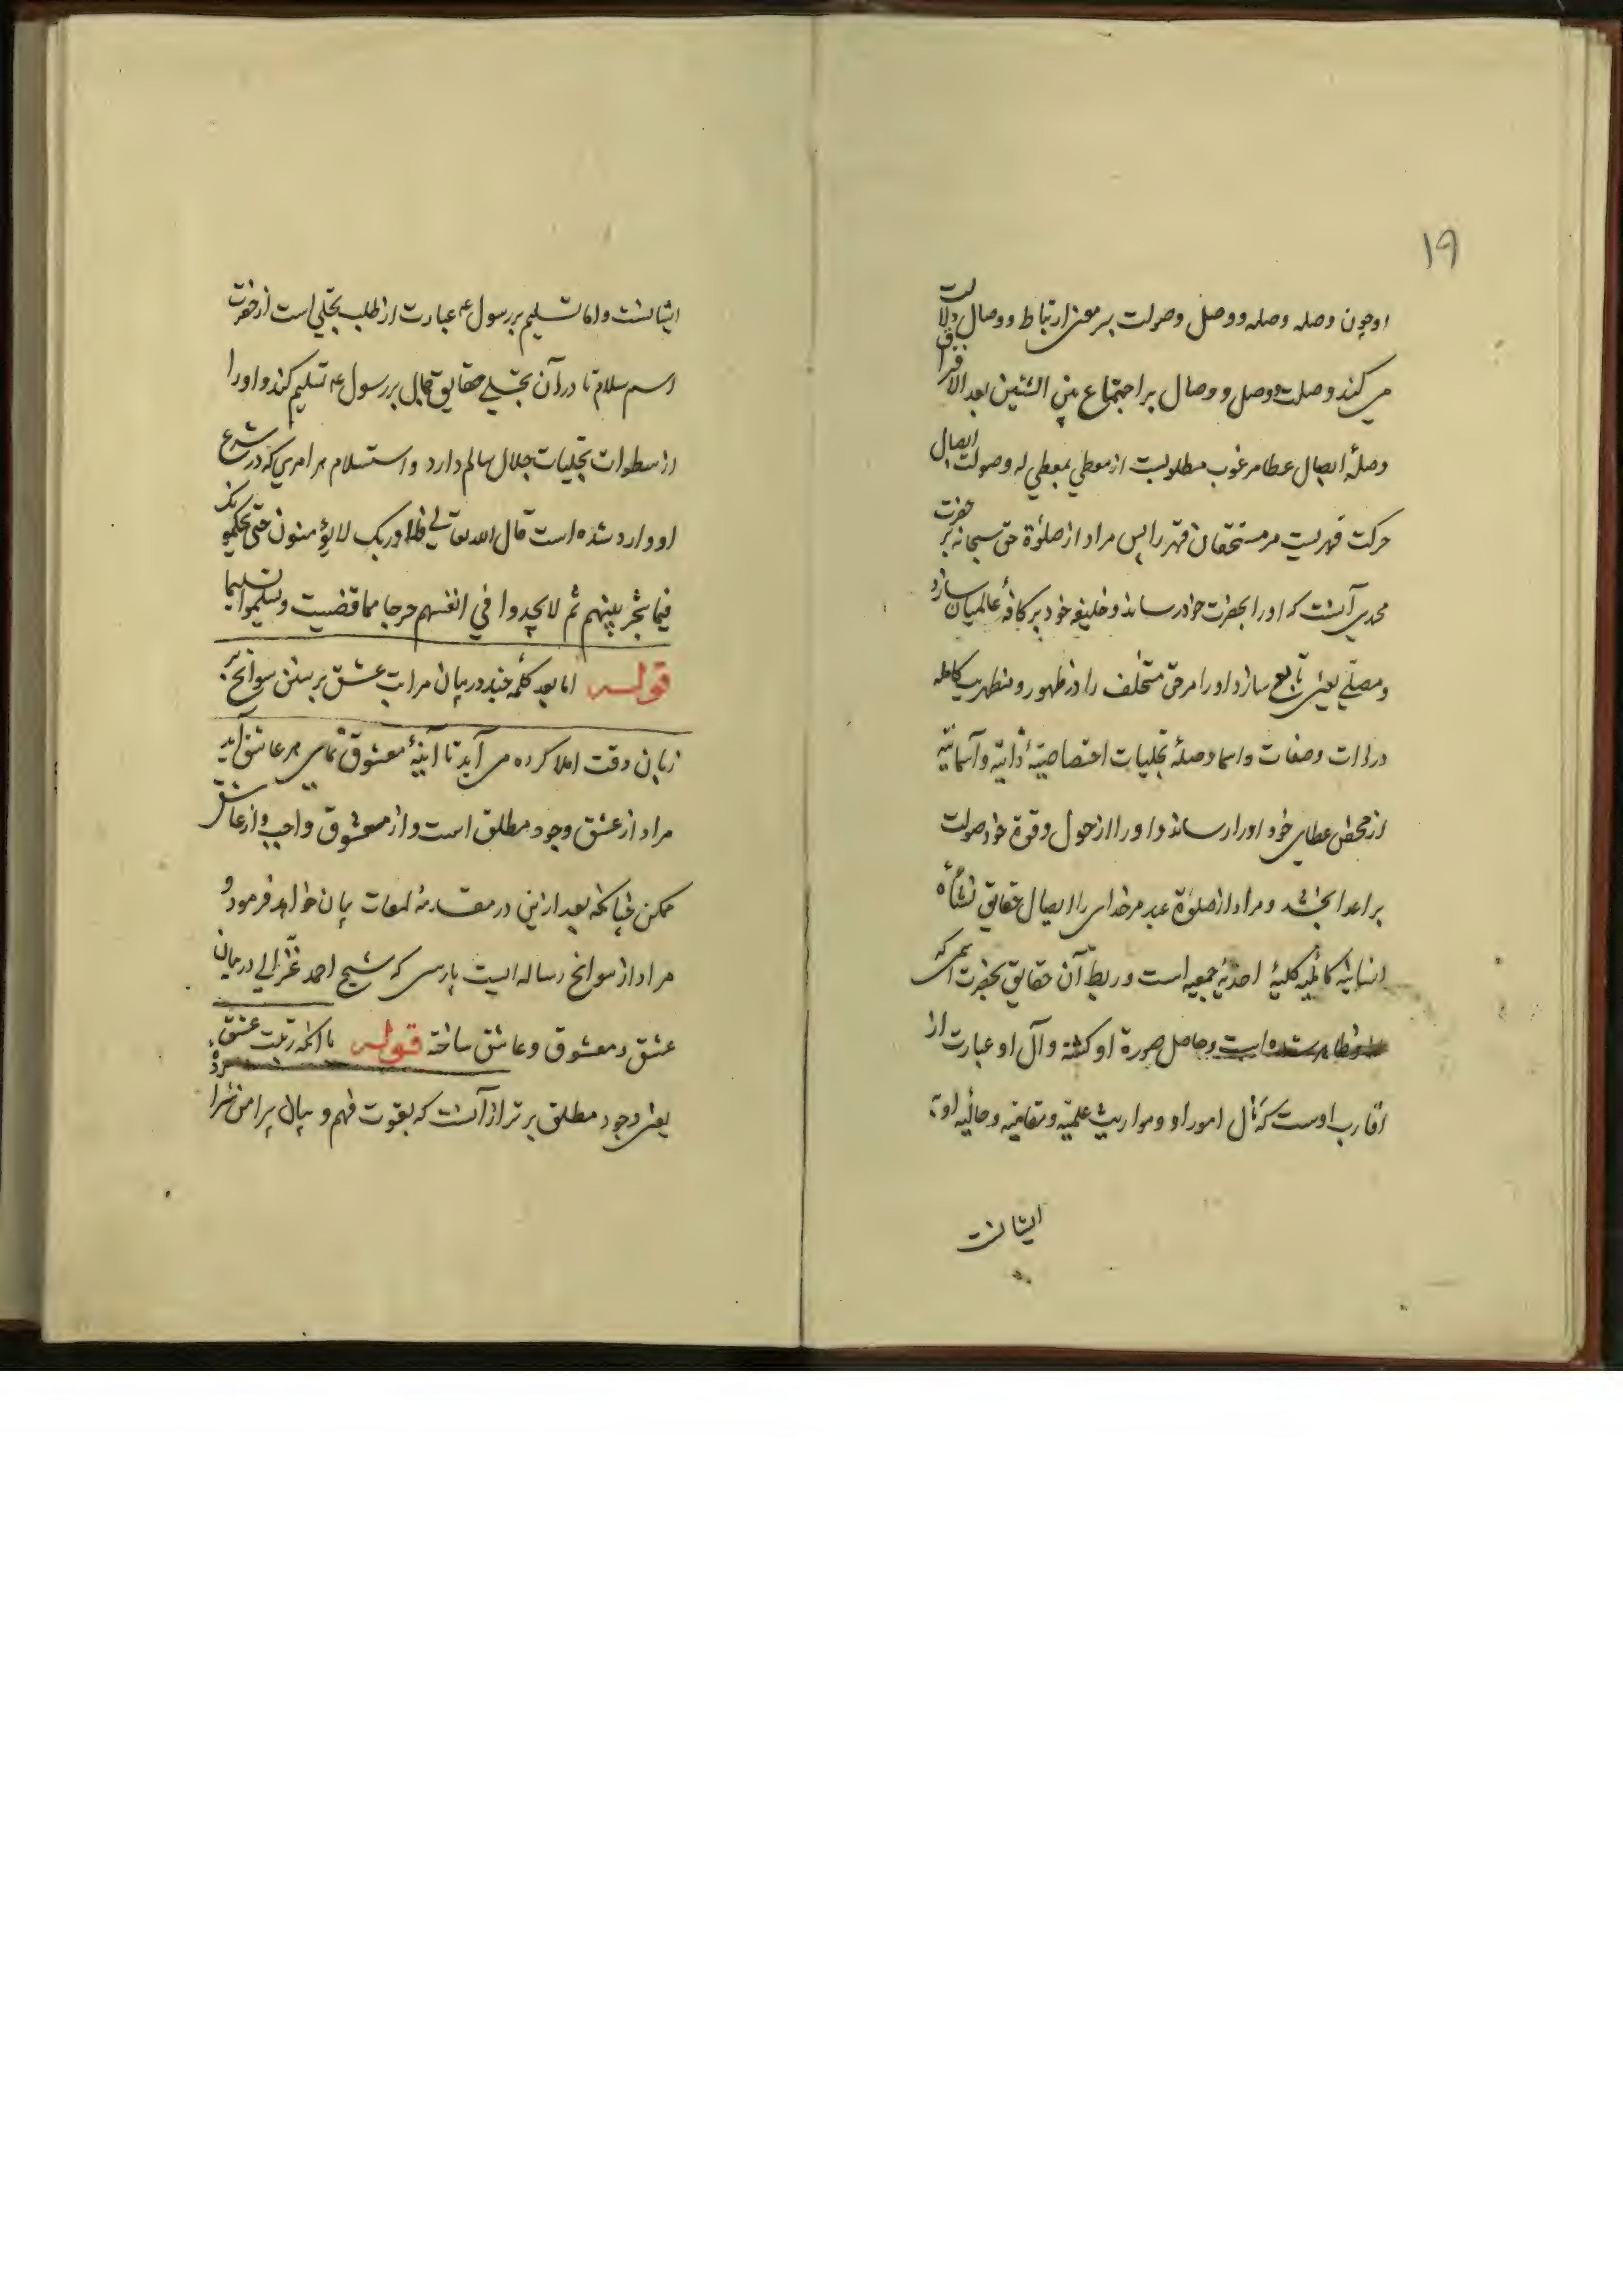 ۱۹
او چون وصله وصله ووصل وصولت بر معنی ارتباط ووصال دلالت
می کند وصلت ووصل و وصال بر اجتماع بین الشئین بعد الافتراق
وصلهٔ ایصال عطا مرغوب مطلوبست از معطی بمعطی له وصولت ایصال
حرکت قهریست مر مستحقان قهر را پس مراد از صلوٰة حق سبحانه بر حضرت
محمدی آنست که او را بحضرت خود رساند و خلیفه خود بر کافهٔ عالمیان سازد
و مصلی یعنی تابع سازد او را مر حق متخلف را در ظهور و مظهریت کامله
در ذات وصفات واسما وصلهٔ تجلیات اختصاصیهٔ ذاتیه وآسمائیه
از محض عطای خود او را رساند و او را از حول وقوة خود صولت
بر اعدا بخشد و مراد از صلوٰة عبد مر خدای را ایصال حقایق نشأهٔ
انسانیه کمالیه کلیهٔ احدیهٔ جمعیه است و ربط آن حقایق بحضرت اسمی که
وحاصل صورة او گشته وآل او عبارت از
اقارب اوست که مآل امور او ومواریث علمیه ومقامیه وحالیه او بـ
ایشانست
ایشانست واما تسلیم بر رسول ع عبارت از طلب تجلی است از حضرت
اسم سلام تا در آن تجلی حقایق کمال بر رسول ع تسلیم کند و او را
از سطوات تجلیات جلال سالم دارد واستسلام هر امری که در شرع
او وارد شده است قال الله تعالی فلا وربک لا یؤمنون حتی یحکموک
فیما شجر بینهم ثم لا یجدوا فی انفسهم حرجا مما قضیت ویسلموا تسلیما
قوله اما بعد کلمهٔ چند در بیان مراتب عشق بر سنن سوانح بـ
زبان وقت املا کرده می آید تا آینهٔ معشوق نمای هر عاشق آید
مراد از عشق وجود مطلق است و از معشوق واجب و از عاشق
ممکن چنانکه بعد ازین در مقدمهٔ لمعات بیان خواهد فرمود و
مراد از سوانح رساله ایست پارسی که شیخ احمد غزالی در بیان
عشق ومعشوق وعاشق ساخته قوله با آنکه رتبت عشق
یعنی وجود مطلق برتر از آنست که بقوت فهم و بیان پیرامن سرا